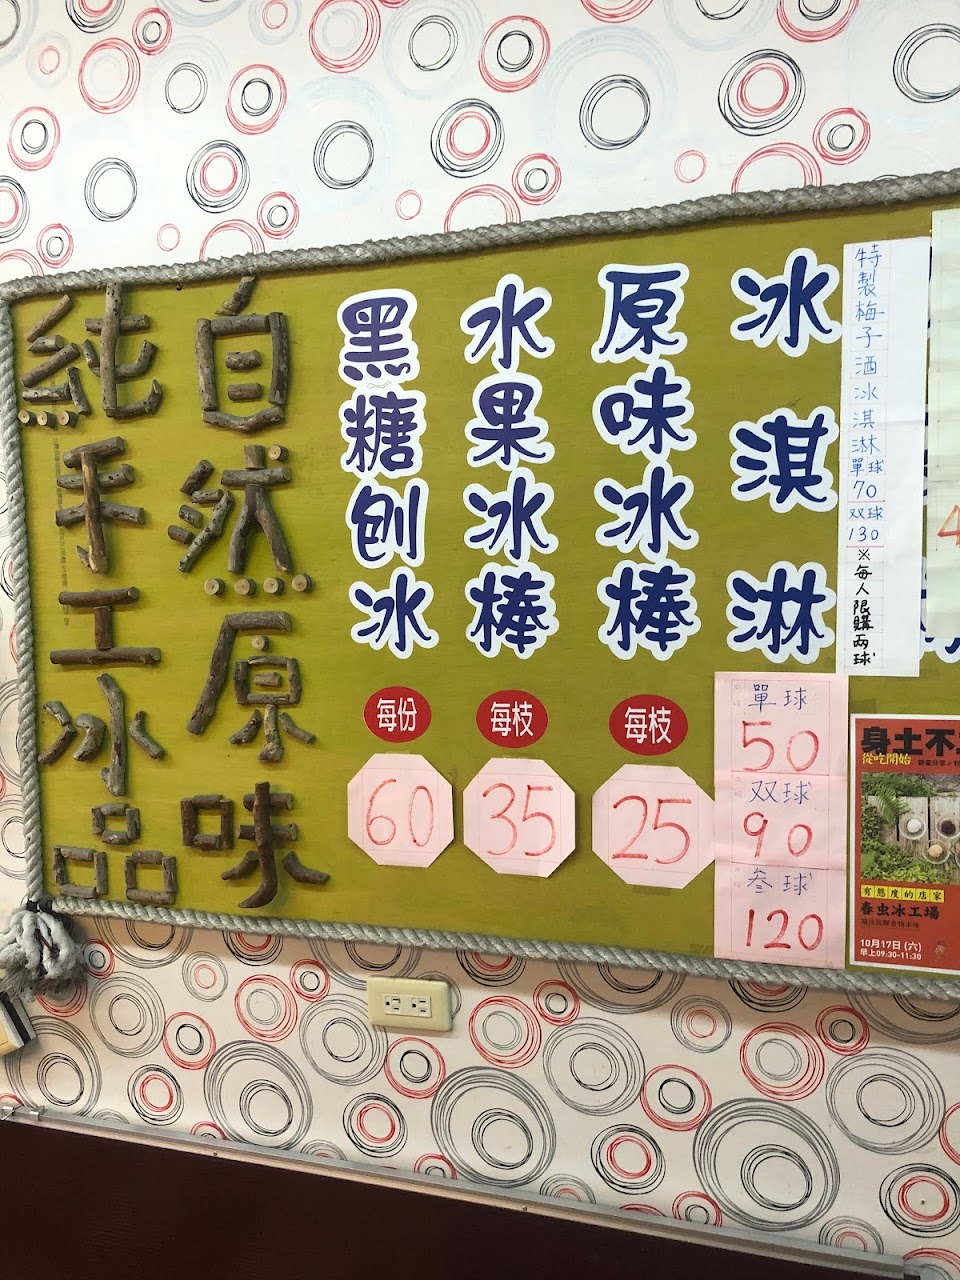 自然原味
純手工冰品
黑糖刨冰
每份
60
水果冰棒
每枝
35
原味冰棒
每枝
25
冰淇淋
單球
50
双球
90
叁球
120
特製梅子酒冰淇淋單球70双球130※每人限購兩球
4
身土不
從吃開始
有態度的店家
春虫冰工場
10月17日(六)
早上09:30-11:30